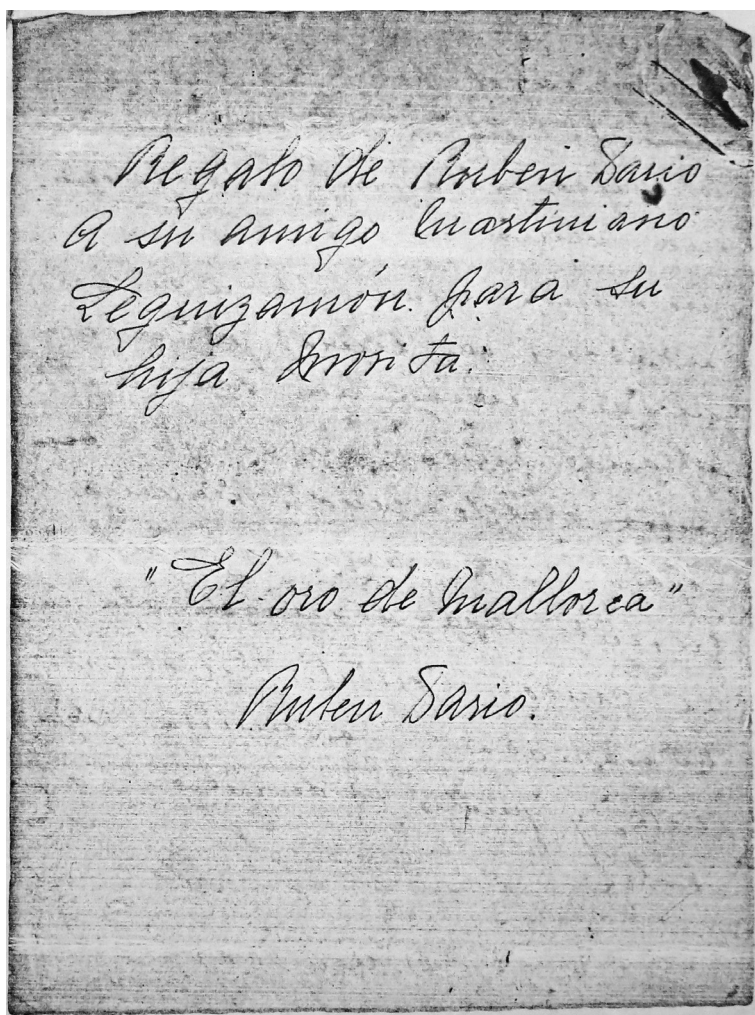 Regalo de Ruben Dario
a su amigo Martiniano
Leguizamón. para su
hija
"El oro de Mallorca"
Ruben Dario.